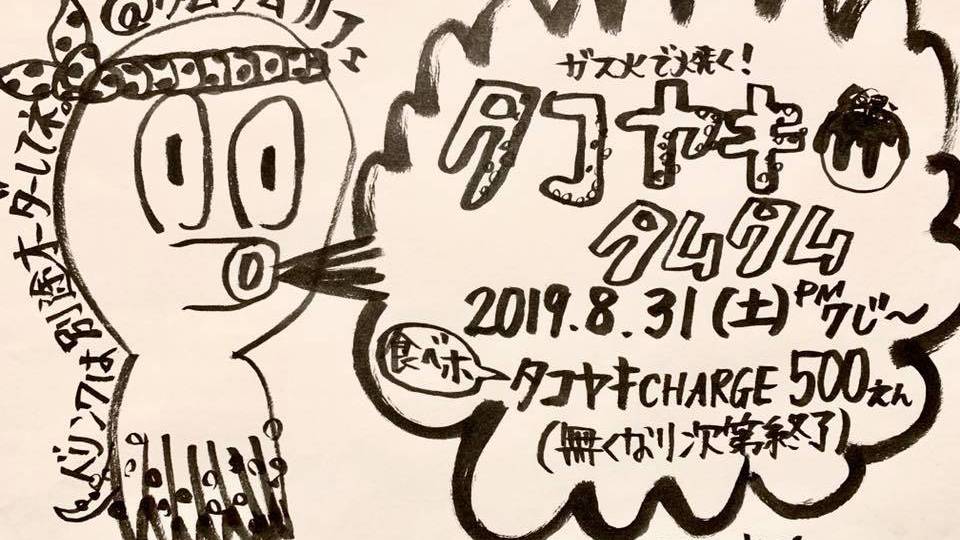 ガス火で焼く！
タコヤキ
タムタム
2019.8.31(土)PM7じ〜
食べホ
タコヤキCHARGE 500えん
(無くなり次第終了)
ドリンクは別途オーダーしてネ。